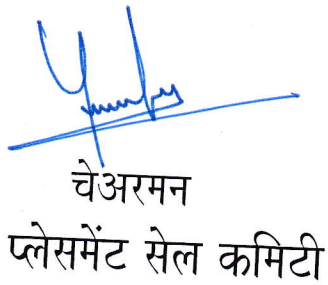 चेअरमन
प्लेसमेंट सेल कमिटी